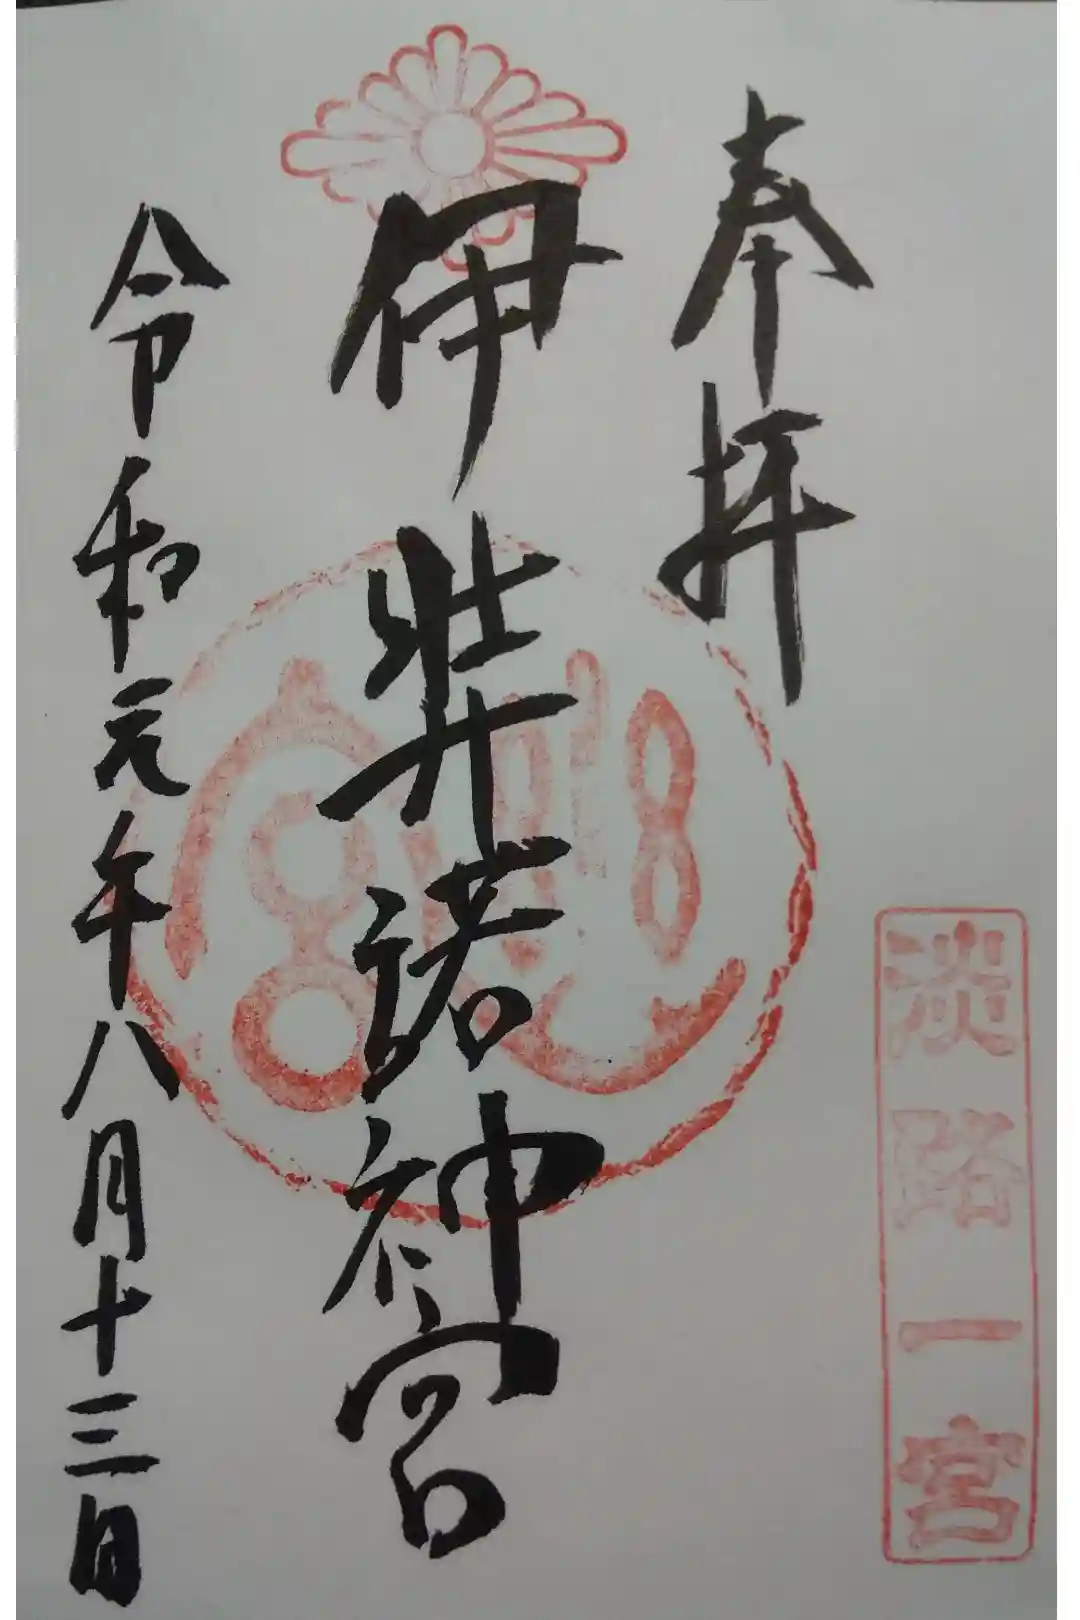 奉拝
淡路一宮
伊弉諾神宮
令和元年八月十三日